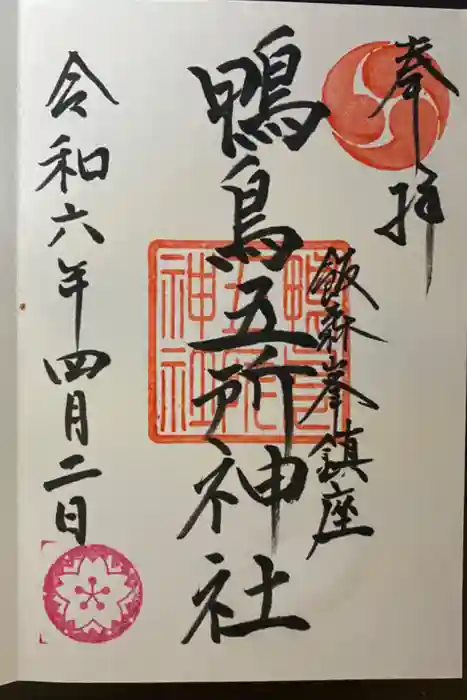 奉拝
飯森峯鎮座
鴨鳥五所神社
鴨鳥
五所
神社
令和六年四月二日